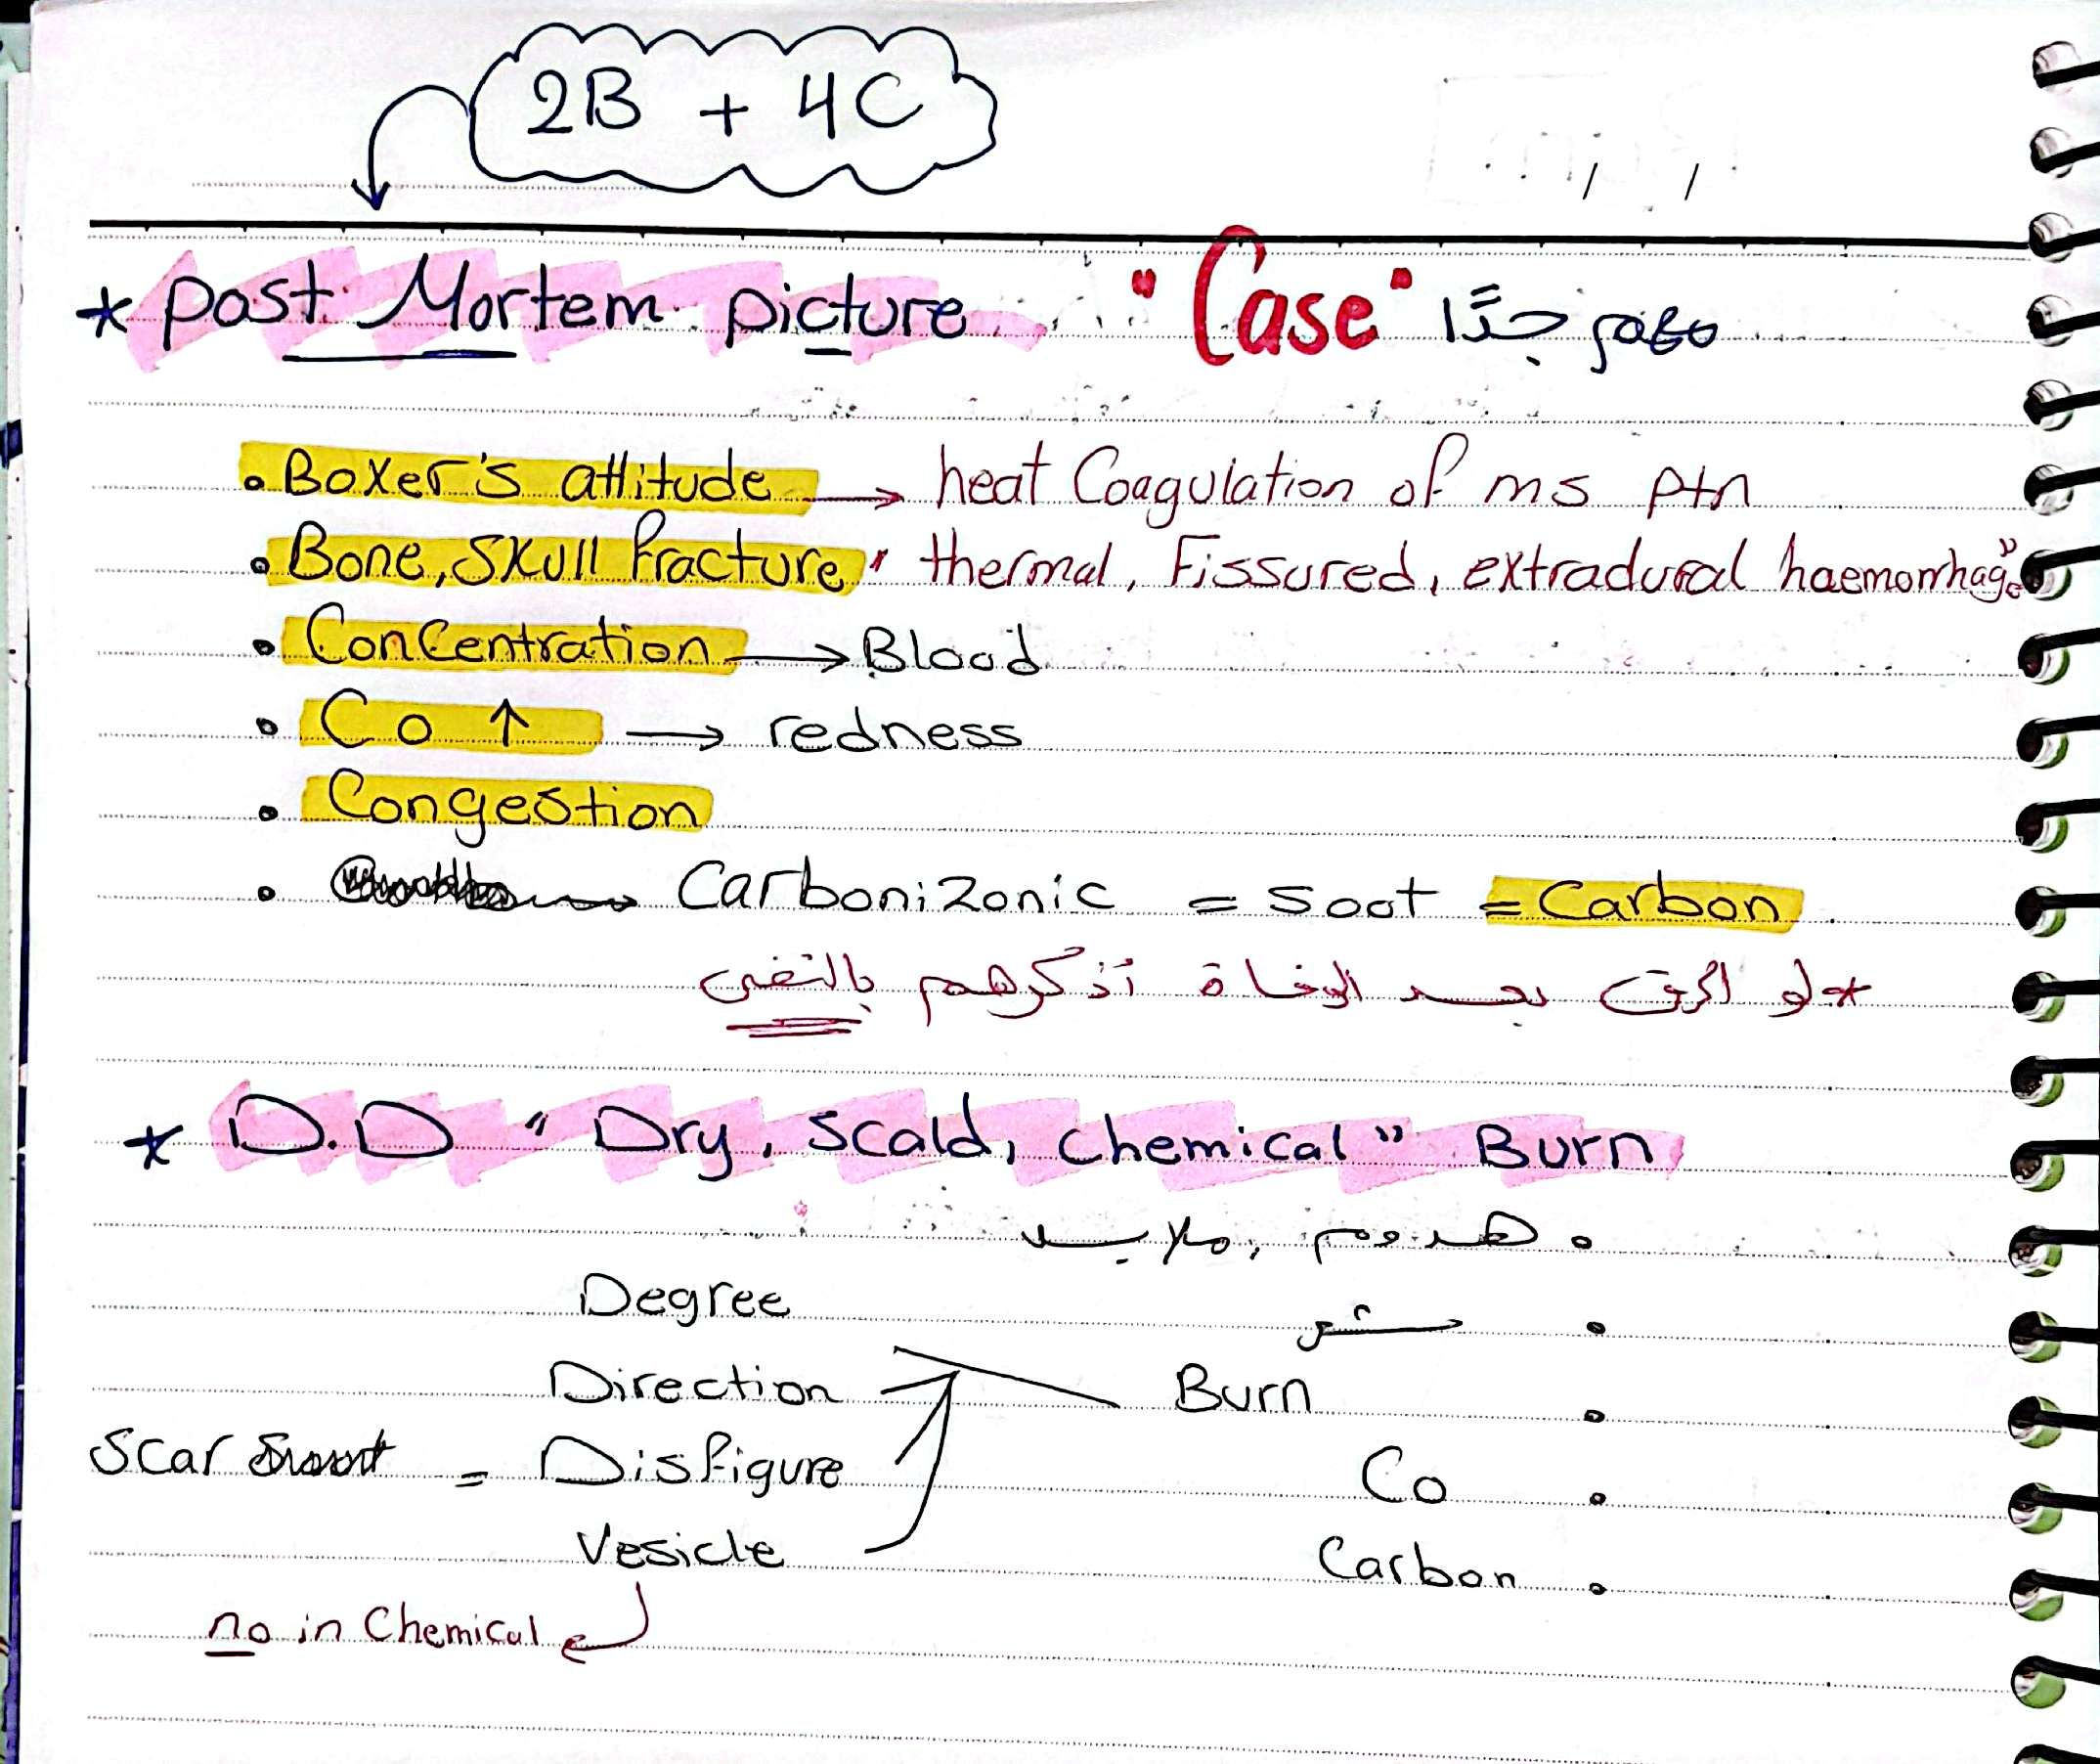 2B + 4C
* Post Mortem picture "Case" مهم جدًا
• Boxer's attitude → heat Coagulation of ms ptn
• Bone, Skull fracture " thermal, Fissured, extradural haemorrhage"
• Concentration → Blood
• Co ↑ → redness
• Congestion
• → Carbonizonic = Soot = Carbon
* لو اتحرق بعد الوفاة أذكرهم بالنفى
* D.D " Dry, Scald, Chemical " Burn
• هدوم, ملابس
Degree
• شعر
Direction
Burn •
Scar = Disfigure
Co •
Vesicle
Carbon •
no in Chemical